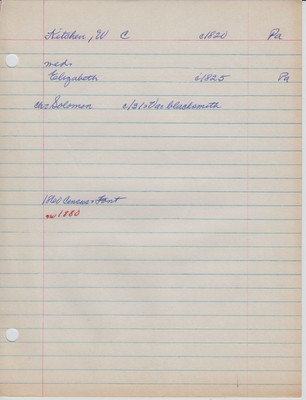 Kitchen, W C c1820 Pa
md
Elizabeth c1825 Pa
ch: Solomon c/31 blacksmith
1860 Census - Font
no 1880